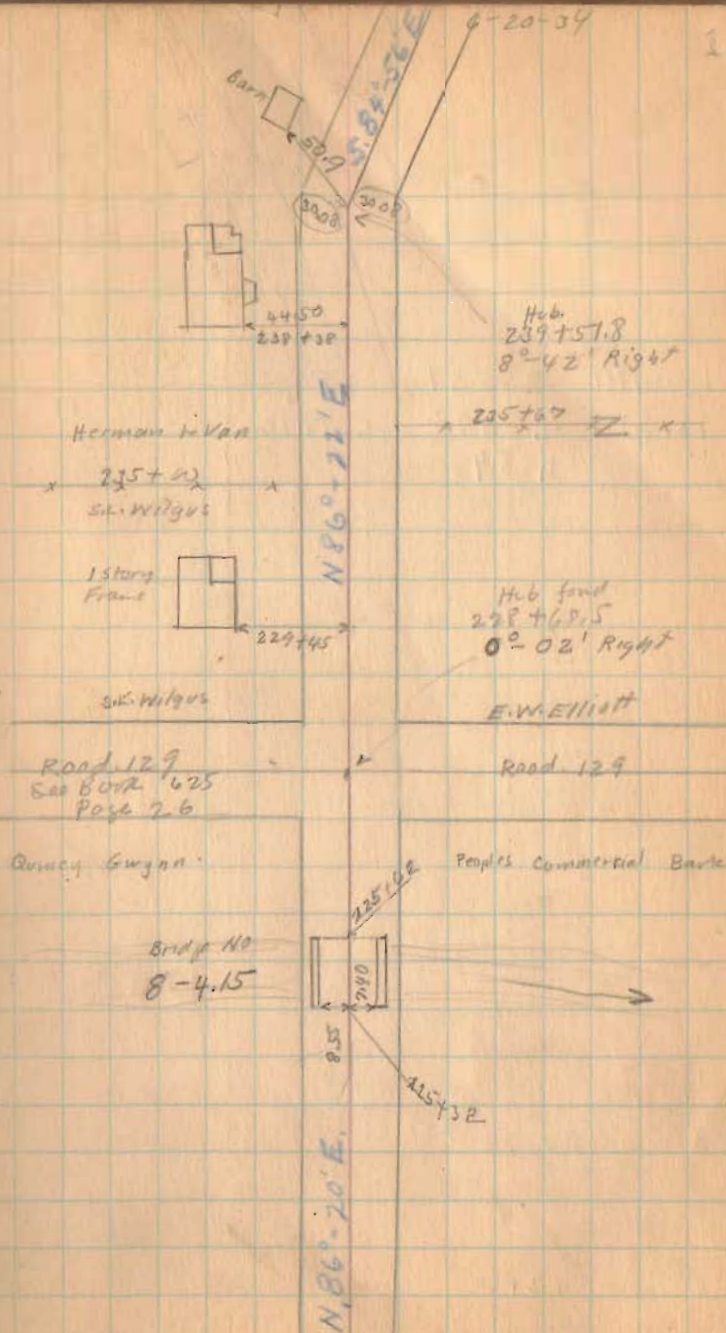 6-20-34
Barn
50.9
S. 84°-56' E
30.08
30.08
44.50
238+38
Hub.
239+51.8
8°-42' Right
N 86°-22' E
Herman
235+67
235+
S.K. Wilgus
1 Story
Frame
229+45
Hub fond
228+68.5
0°-02' Right
S.K. Wilgus
E.W. Elliott
Road 129
See Book 625
Page 26
Road 129
Quincy Gwynn
Peoples Commercial Bank
225+
Bridge NO
8-4.15
7.40
8.55
225+32
N. 86°-20' E.